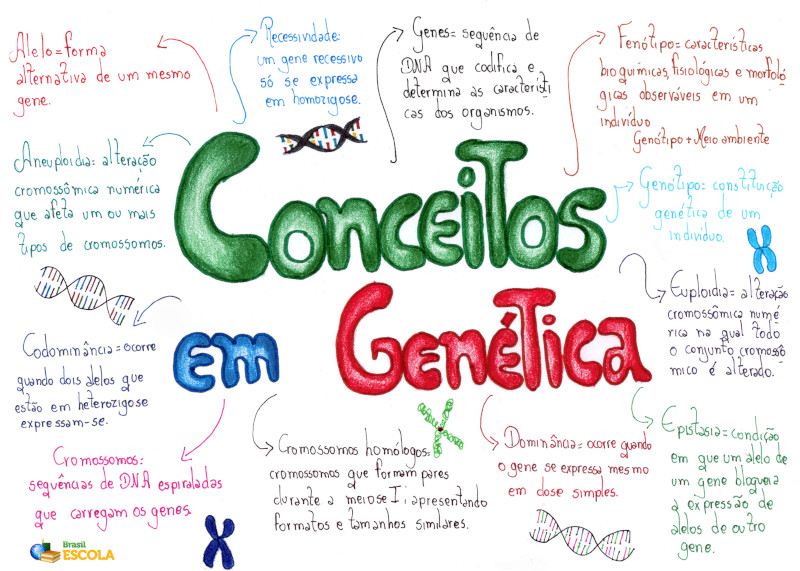 Conceitos
em Genética
Alelo = forma
alternativa de um mesmo
gene.
Recessividade:
um gene recessivo
só se expressa
em homozigose.
Genes = sequência de
DNA que codifica e
determina as característi
cas dos organismos.
Fenótipo = características
bioquímicas, fisiológicas e morfoló
gicas observáveis em um
indivíduo
Genótipo + Meio ambiente
Aneuploidia = alteração
cromossômica numérica
que afeta um ou mais
tipos de cromossomos.
Genótipo = constituição
genética de um
indivíduo.
Euploidia = alteração
cromossômica numé
rica na qual todo
o conjunto cromossô
mico é alterado.
Codominância = ocorre
quando dois alelos que
estão em heterozigose
expressam-se.
Cromossomos:
sequências de DNA espiraladas
que carregam os genes.
Cromossomos homólogos:
cromossomos que formam pares
durante a meiose I, apresentando
formatos e tamanhos similares.
Dominância = ocorre quando
o gene se expressa mesmo
em dose simples.
Epistasia = condição
em que um alelo de
um gene bloqueia
a expressão de
alelos de outro
gene.
Brasil
ESCOLA